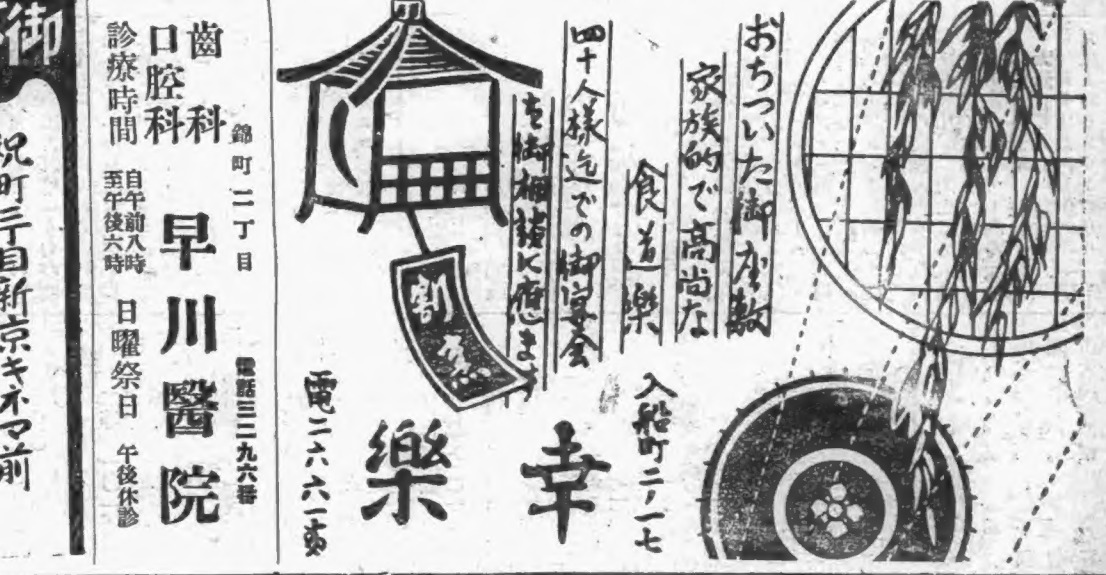 おちついた御座敷
家族的で高尚な
食道樂
四十人様迄での御宴会
も御相談に應ます
割烹
入船町二ノ一七
幸樂
電二六六一番
錦町二丁目
電話三二九六番
齒科
口腔科
早川醫院
診療時間
自午前八時
至午後六時
日曜祭日
午後休診
御
祝町三丁目新京キネマ前